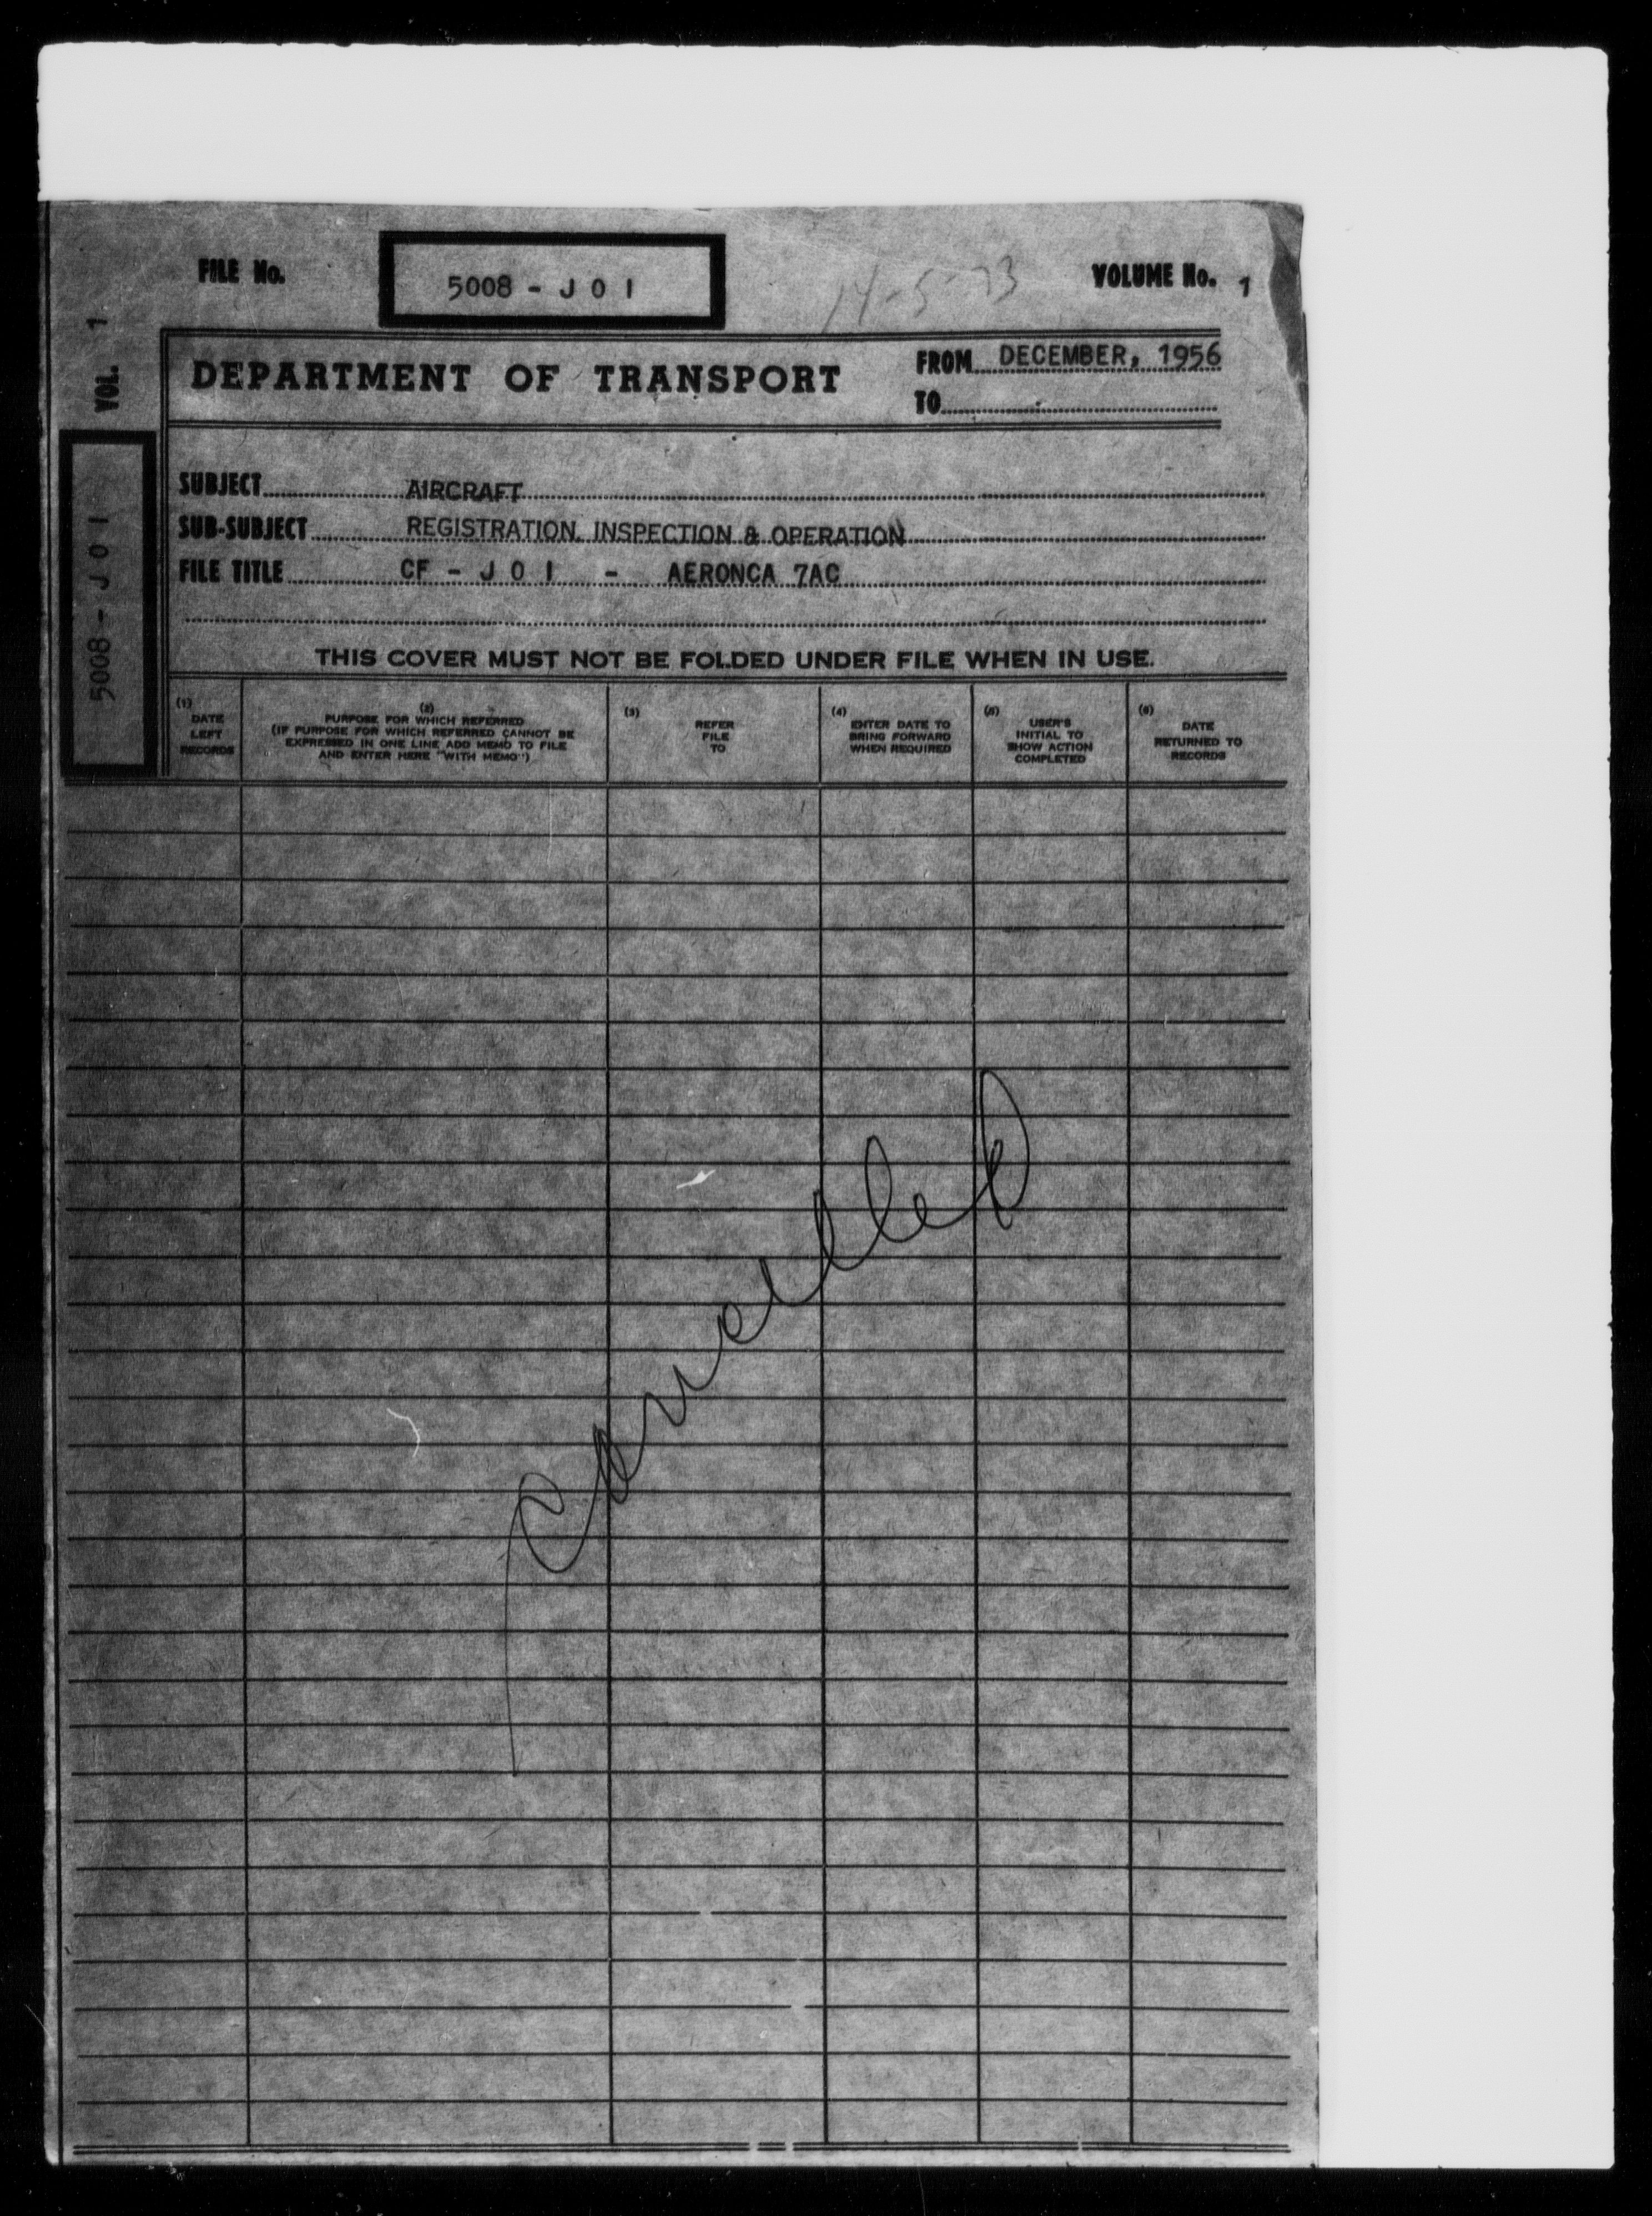 FILE No.
5008 - J O I
14-5-73
VOLUME No. 1
VOL. 1
5008 - J O I
DEPARTMENT OF TRANSPORT
FROM DECEMBER, 1956
TO
SUBJECT AIRCRAFT
SUB-SUBJECT REGISTRATION, INSPECTION & OPERATION
FILE TITLE CF - J O I - AERONCA 7AC
THIS COVER MUST NOT BE FOLDED UNDER FILE WHEN IN USE.
(1)
DATE
LEFT
RECORDS
(2)
PURPOSE FOR WHICH REFERRED
(IF PURPOSE FOR WHICH REFERRED CANNOT BE
EXPRESSED IN ONE LINE ADD MEMO TO FILE
AND ENTER HERE "WITH MEMO")
(3)
REFER
FILE
TO
(4)
ENTER DATE TO
BRING FORWARD
WHEN REQUIRED
(5)
USER'S
INITIAL TO
SHOW ACTION
COMPLETED
(6)
DATE
RETURNED TO
RECORDS
Cancelled